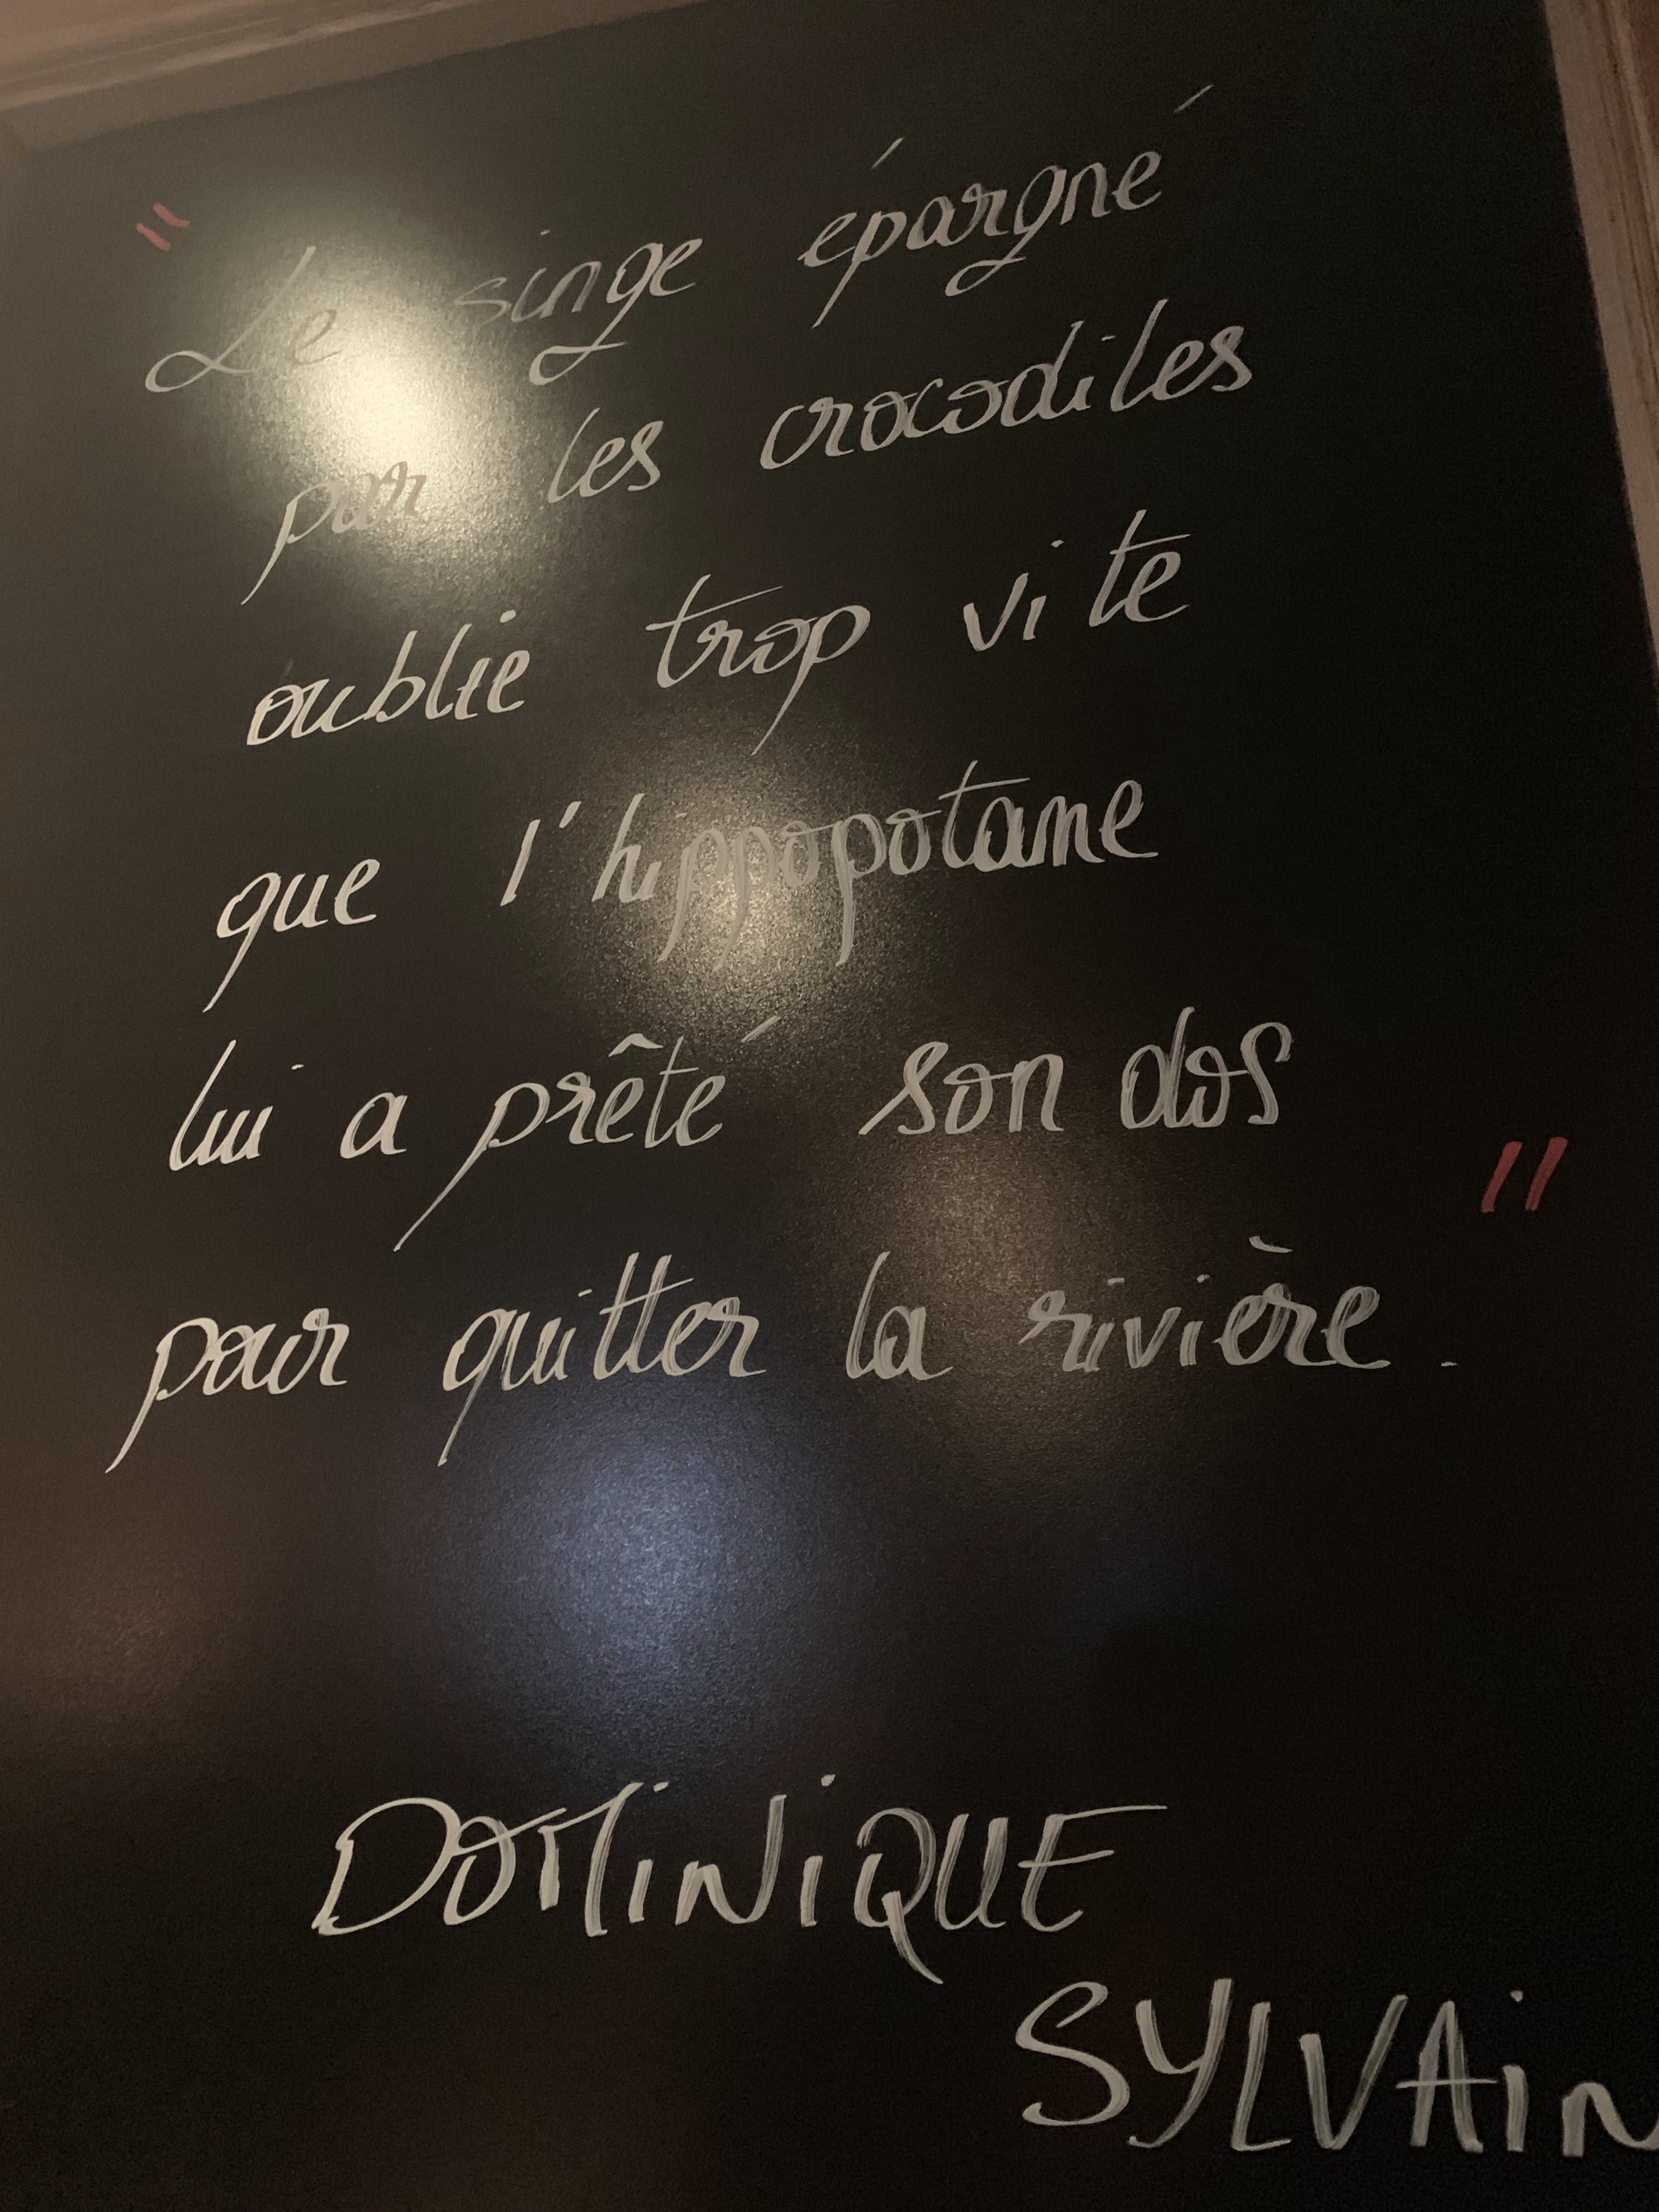 " Le singe épargné
par les crocodiles
oublie trop vite
que l'hippopotame
lui a prêté son dos
pour quitter la rivière. "
DOMiNiQUE
SYLVAiN